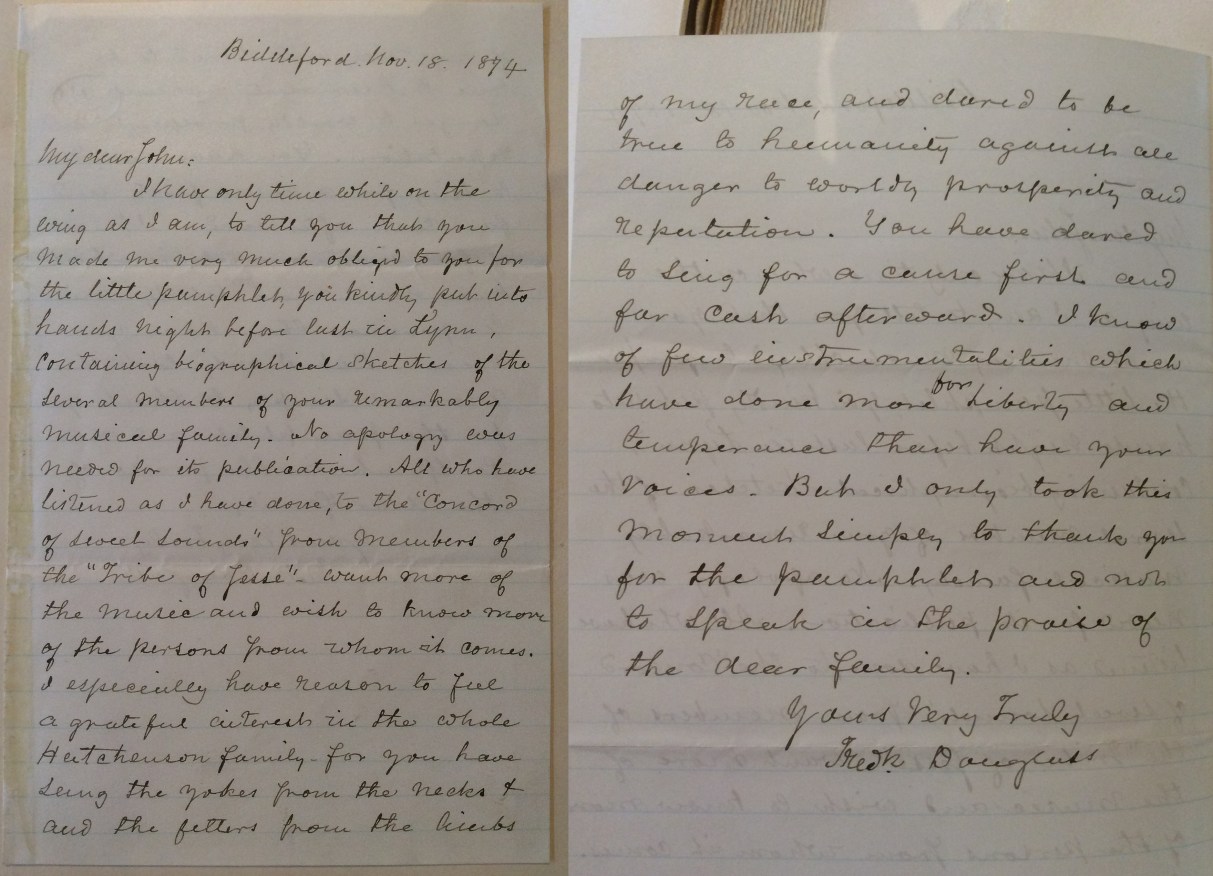 Biddeford. Nov. 18. 1874
My dear John:
I have only time while on the
wing as I am, to tell you that you
made me very much obliged to you for
the little pamphlet, you kindly put into
hands night before last in Lynn,
containing biographical sketches of the
several members of your remarkably
musical family. No apology was
needed for its publication. All who have
listened as I have done, to the "Concord
of sweet sounds" from members of
the "Tribe of Jesse" - want more of
the music and wish to know more
of the persons from whom it comes.
I especially have reason to feel
a grateful interest in the whole
Hutchenson family - for you have
sung the yokes from the necks &
and the fetters from the limbs
of my race, and dared to be
true to humanity against all
danger to worldly prosperity and
reputation. You have dared
to sing for a cause first and
for cash afterward. I know
of few instrumentalities which
have done more for liberty and
temperance than have your
voices. But I only took this
moment simply to thank you
for the pamphlet and not
to speak in the praise of
the dear family.
Yours Very Truly
Fredk. Douglass